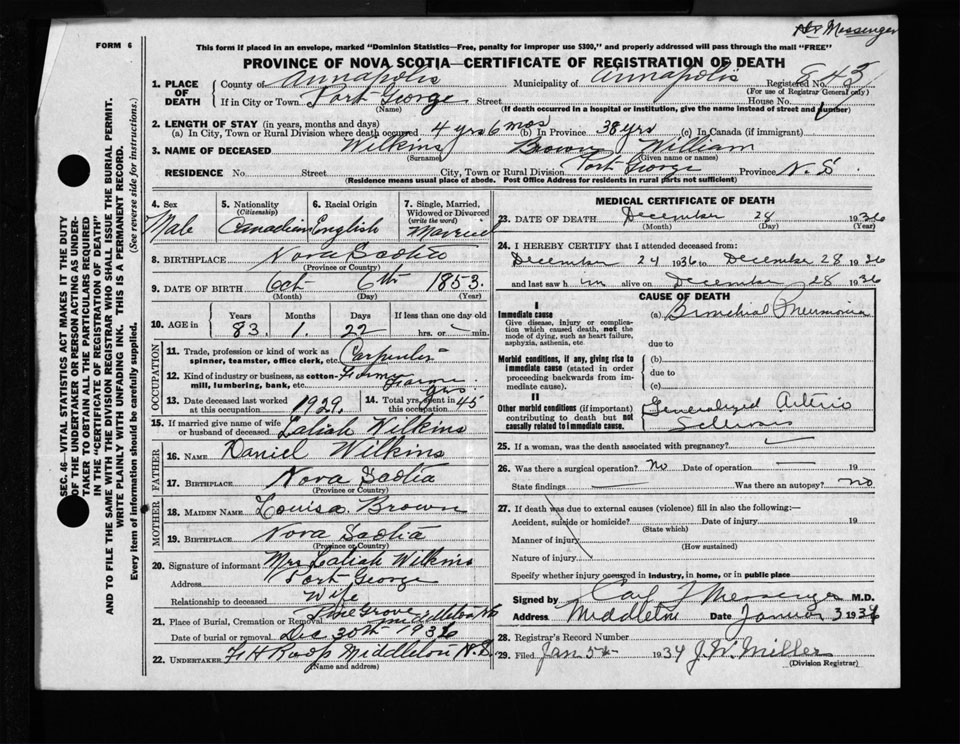 Dr Messenger
FORM 6
This form if placed in an envelope, marked "Dominion Statistics—Free, penalty for improper use $300," and properly addressed will pass through the mail "FREE"
PROVINCE OF NOVA SCOTIA—CERTIFICATE OF REGISTRATION OF DEATH
SEC. 46—VITAL STATISTICS ACT MAKES IT THE DUTY
OF THE UNDERTAKER OR PERSON ACTING AS UNDER-
TAKER TO OBTAIN ALL THE PARTICULARS REQUIRED
IN THE "CERTIFICATE OF REGISTRATION OF DEATH"
AND TO FILE THE SAME WITH THE DIVISION REGISTRAR WHO SHALL ISSUE THE BURIAL PERMIT.
WRITE PLAINLY WITH UNFADING INK. THIS IS A PERMANENT RECORD.
Every item of information should be carefully supplied. (See reverse side for instructions.)
1. PLACE OF DEATH County of Annapolis Municipality of Annapolis Registered No. 843
(For use of Registrar General only)
If in City or Town Port George Street House No.
(Name) (If death occurred in a hospital or institution, give the name instead of street and number)
2. LENGTH OF STAY (in years, months and days)
(a) In City, Town or Rural Division where death occurred 4 yrs 6 mos (b) In Province 38 yrs (c) In Canada (if immigrant)
3. NAME OF DECEASED Wilkins Brown William
(Surname) (Given name or names)
RESIDENCE No. Street City, Town or Rural Division Port George Province N.S.
(Residence means usual place of abode. Post Office Address for residents in rural parts not sufficient)
4. Sex Male
5. Nationality (Citizenship) Canadian
6. Racial Origin English
7. Single, Married, Widowed or Divorced (write the word) Married
8. BIRTHPLACE Nova Scotia
(Province or Country)
9. DATE OF BIRTH Oct 6th 1853.
(Month) (Day) (Year)
10. AGE in Years 83. Months 1. Days 22 If less than one day old hrs. or min.
OCCUPATION
11. Trade, profession or kind of work as spinner, teamster, office clerk, etc. Carpenter
12. Kind of industry or business, as cotton-mill, lumbering, bank, etc.
13. Date deceased last worked at this occupation 1929.
14. Total yrs. spent in this occupation 45 yrs
15. If married give name of wife or husband of deceased. Laliah Wilkins
FATHER
16. NAME Daniel Wilkins
17. BIRTHPLACE Nova Scotia
(Province or Country)
MOTHER
18. MAIDEN NAME Louisa Brown
19. BIRTHPLACE Nova Scotia
(Province or Country)
20. Signature of informant Mrs Laliah Wilkins
Address Port George
Relationship to deceased Wife
21. Place of Burial, Cremation or Removal Pine Grove Middleton NS
Date of burial or removal Dec 30th 1936
22. UNDERTAKER F H Roop Middleton N.S.
(Name and address)
MEDICAL CERTIFICATE OF DEATH
23. DATE OF DEATH December 28 1936
(Month) (Day) (Year)
24. I HEREBY CERTIFY that I attended deceased from:
December 24 1936 to December 28 1936
and last saw h im alive on December 28 1936
CAUSE OF DEATH
I
Immediate cause (a) Bronchial Pneumonia
Give disease, injury or complication which caused death, not the mode of dying, such as heart failure, asphyxia, asthenia, etc.
due to
Morbid conditions, if any, giving rise to immediate cause (stated in order proceeding backwards from immediate cause).
(b)
due to
(c)
II
Other morbid conditions (if important) contributing to death but not causally related to immediate cause.
Generalized Arterio Sclerosis
25. If a woman, was the death associated with pregnancy?
26. Was there a surgical operation? No Date of operation — 19
State findings — Was there an autopsy? no
27. If death was due to external causes (violence) fill in also the following:—
Accident, suicide or homicide? Date of injury 19
(State which)
Manner of injury
(How sustained)
Nature of injury
Specify whether injury occured in industry, in home, or in public place
Signed by Carl Messenger M.D.
Address Middleton Date January 3 1936
28. Registrar's Record Number
29. Filed Jan 5th 1934 J. W. Miller
(Division Registrar)